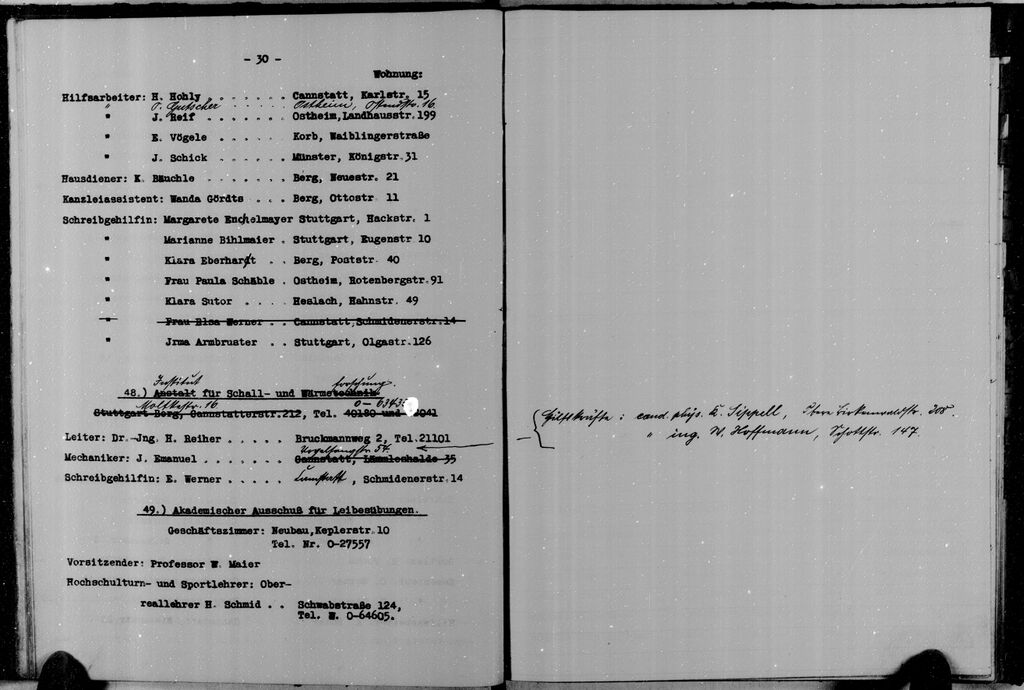 - 30 -
Wohnung:
Hilfsarbeiter: H. Hohly . . . . . . . Cannstatt, Karlstr. 15
" O. Gutscher . . . . . . Ostheim, Ostendstr. 16
" J. Reif . . . . . . . Ostheim, Landhausstr. 199
" E. Vögele . . . . . . Korb, Waiblingerstraße
" J. Schick . . . . . . Münster, Königstr. 31
Hausdiener: K. Bäuchle . . . . . . . Berg, Neuestr. 21
Kanzleiassistent: Wanda Gördts . . . Berg, Ottostr 11
Schreibgehilfin: Margarete Enchelmayer Stuttgart, Hackstr. 1
" Marianne Bihlmaier . Stuttgart, Eugenstr 10
" Klara Eberhardt . . Berg, Poststr. 40
" Frau Paula Schäble . Ostheim, Rotenbergstr. 91
" Klara Sutor . . . . Heslach, Hahnstr. 49
" Frau Elsa Werner . . Cannstatt, Schmidenerstr. 14
" Irma Armbruster . . Stuttgart, Olgastr. 126
Institut forschung.
48.) Anstalt für Schall- und Wärmetechnik
Moltkestr. 16 0-6343
Stuttgart-Berg, Cannstatterstr. 212, Tel. 40180 und
Leiter: Dr.-Jng. H. Reiher . . . . . Bruckmannweg 2, Tel. 21101
Vogelsangstr. 54.
Mechaniker: J. Emanuel . . . . . . . Cannstatt, Lämmleshalde 35
Schreibgehilfin: E. Werner . . . . . Cannstatt, Schmidenerstr. 14
49.) Akademischer Ausschuß für Leibesübungen.
Geschäftszimmer: Neubau, Keplerstr. 10
Tel. Nr. 0-27557
Vorsitzender: Professor W. Maier
Hochschulturn- und Sportlehrer: Ober-
reallehrer H. Schmid . . Schwabstraße 124,
Tel. W. 0-64605.
Hilfskräfte: cand. phys. K. Sippell, Birkenwaldstr. 308.
" ing. W. Hoffmann, Schottstr. 147.